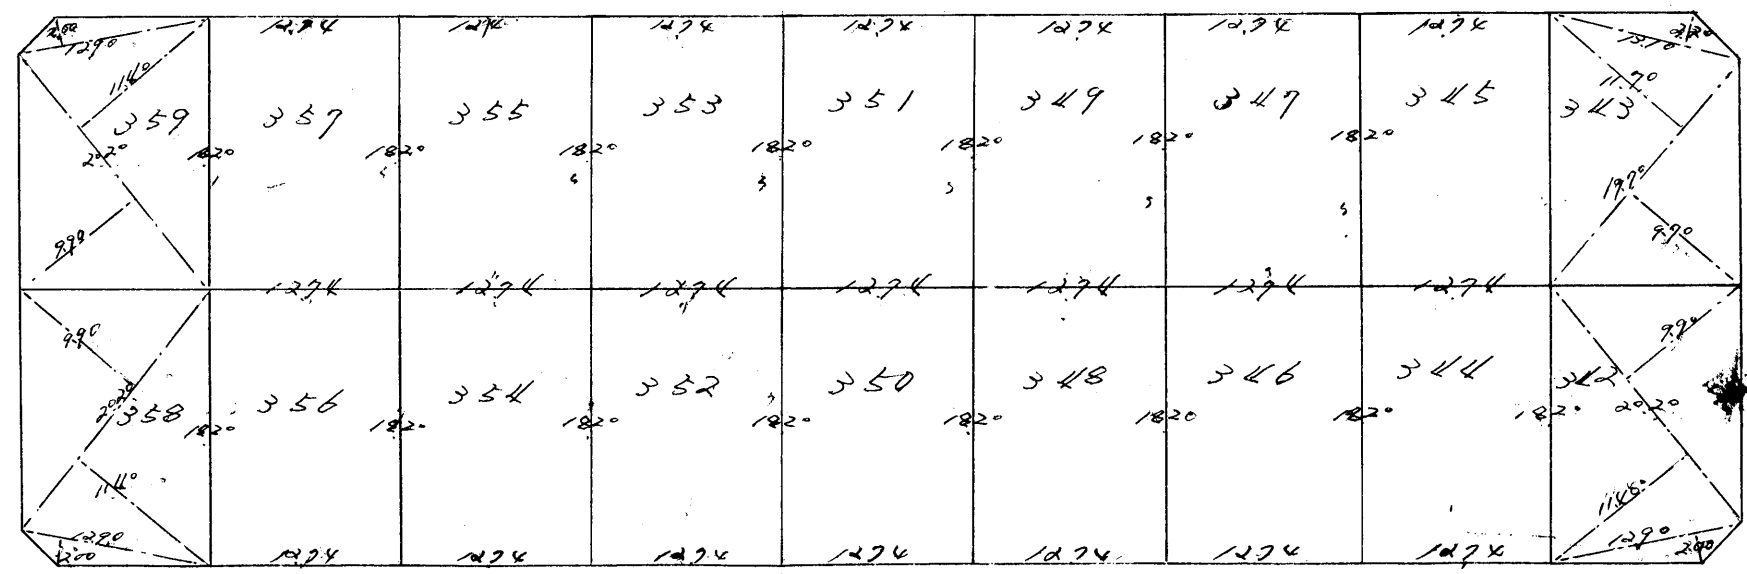 2.00 12.74 12.74 12.74 12.74 12.74 12.74 12.74 2.20
12.90 13.10
11.40 11.70
359 357 355 353 351 349 347 345 343
20.20 18.20 18.20 18.20 18.20 18.20 18.20 18.20
19.70
9.90 9.70
12.74 12.74 12.74 12.74 12.74 12.74 12.74
9.90 9.90
358 356 354 352 350 348 346 344 342
20.20 18.20 18.20 18.20 18.20 18.20 18.20 18.20 18.20 20.20
11.40 11.40
12.90 12.90
2.00 12.74 12.74 12.74 12.74 12.74 12.74 12.74 2.00